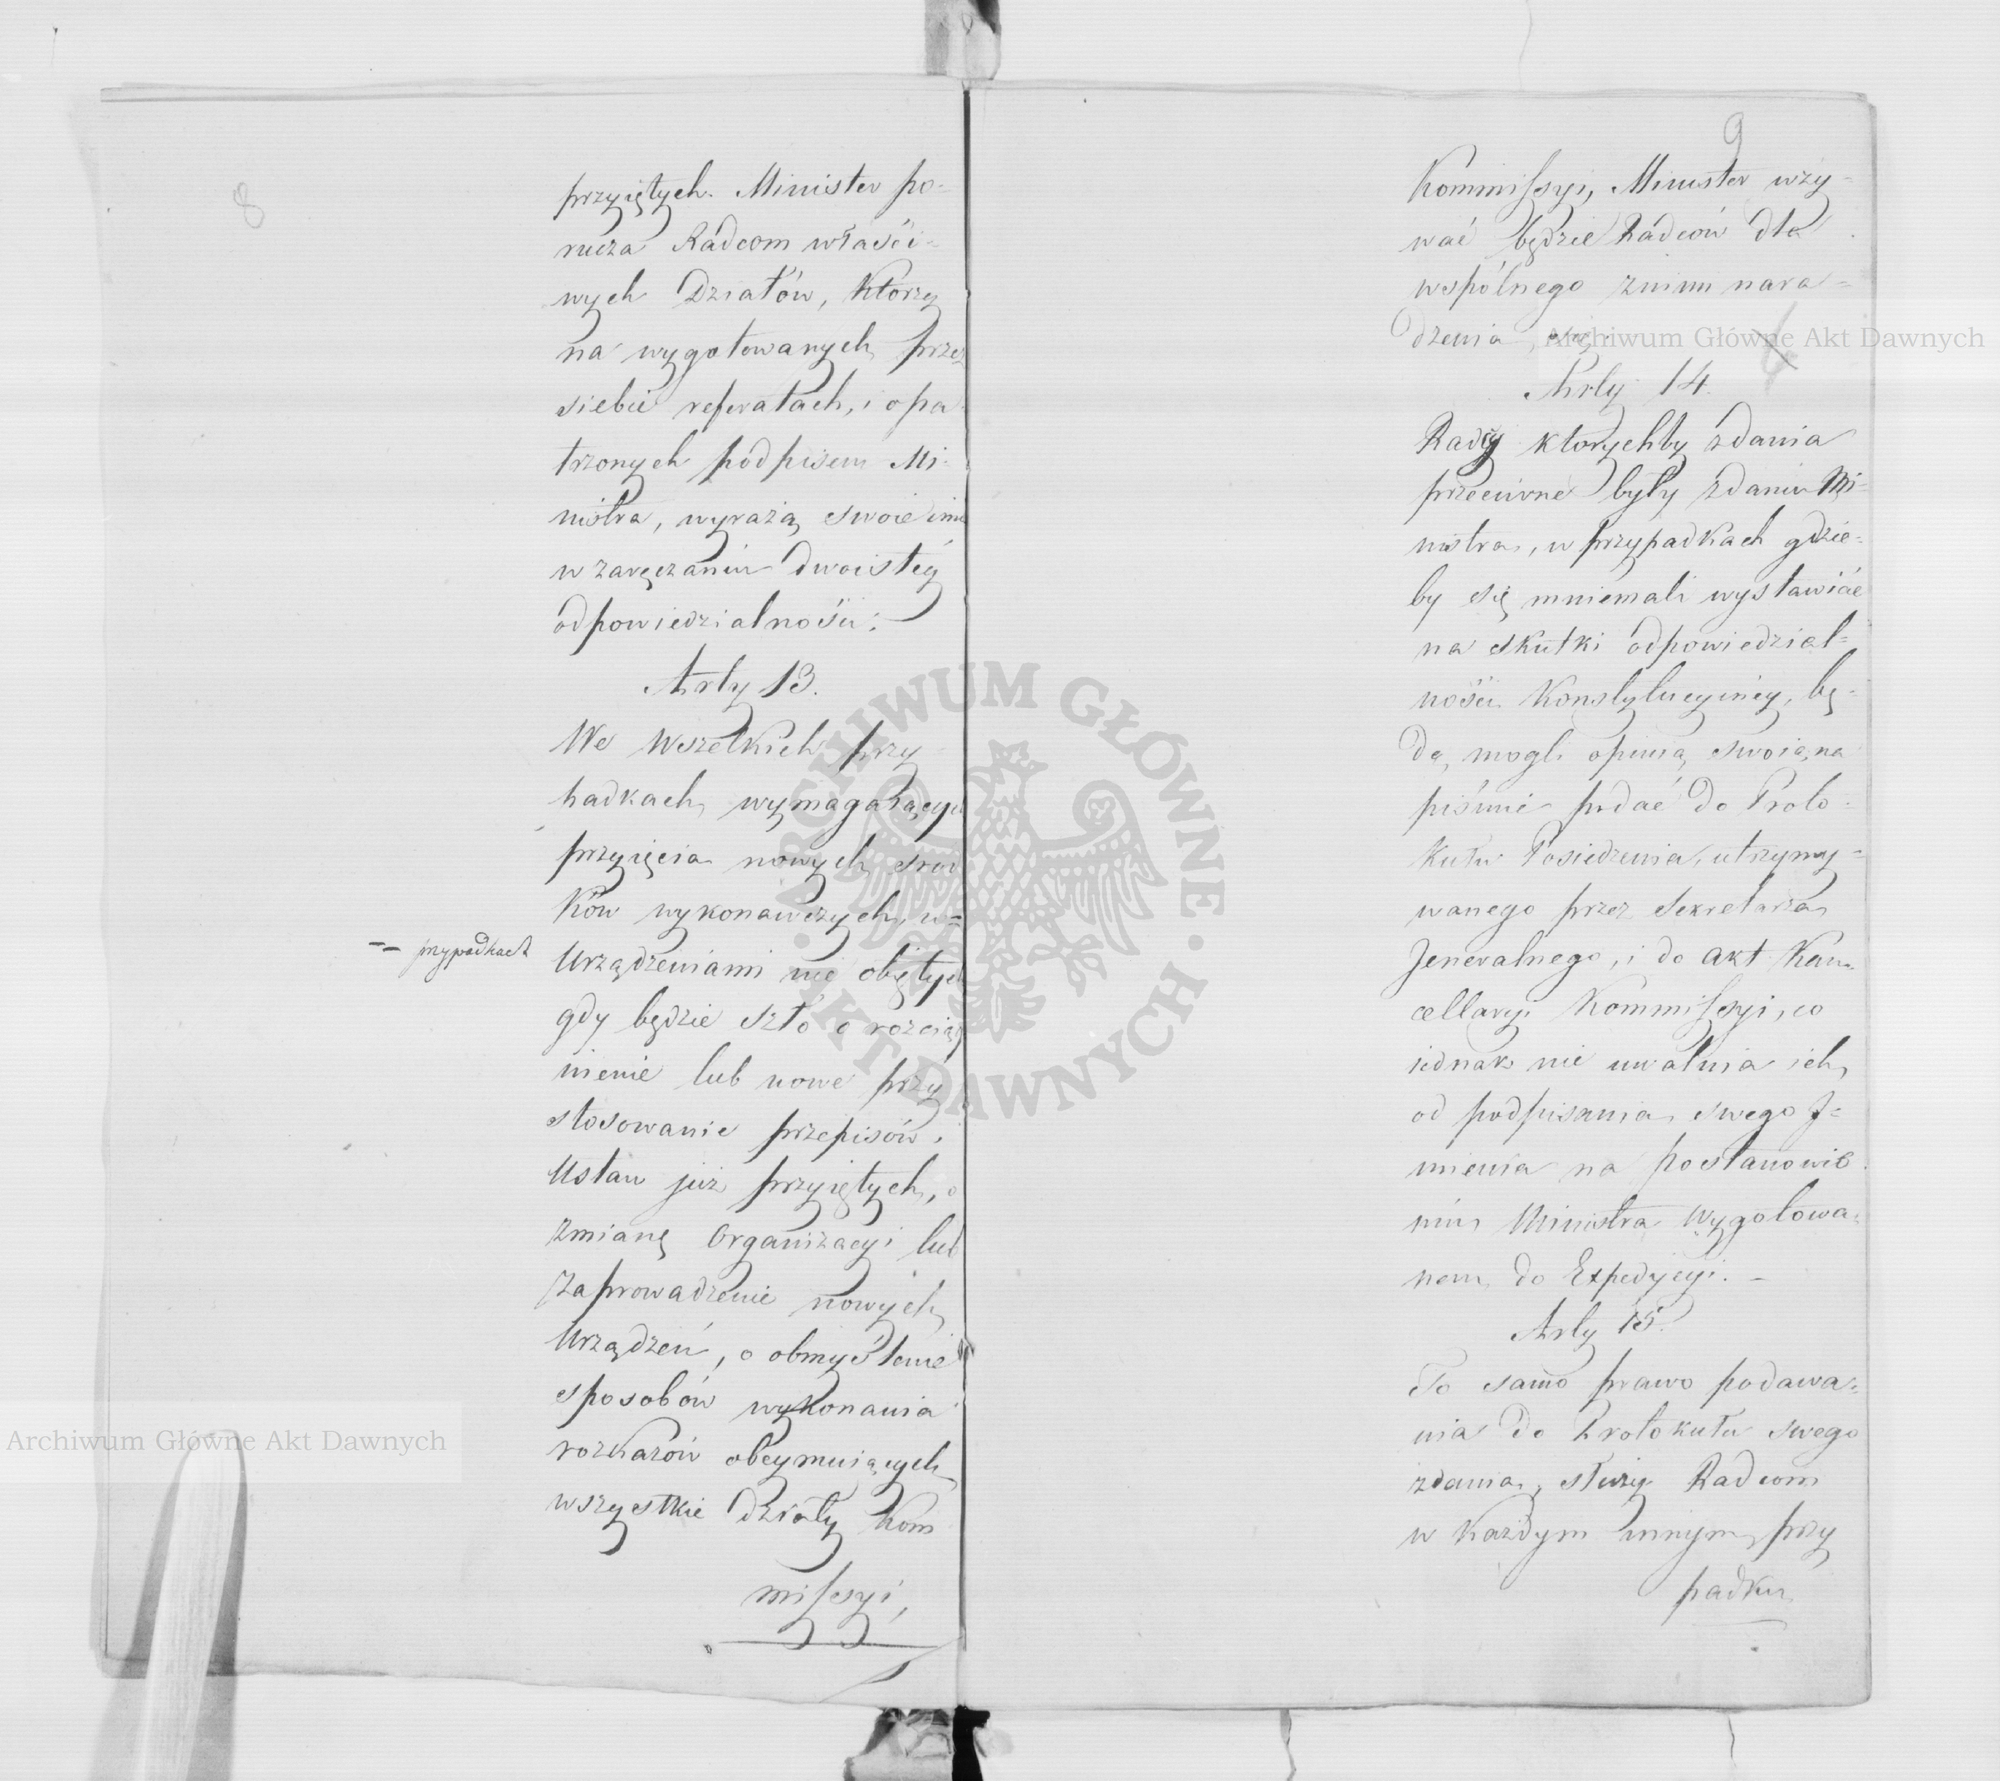 8
przyiętych. Minister po-
rucza Radcom właści-
wych Działów, którzy
na wygotowanych przez
siebie referatach, i opa-
trzonych podpisem Mi-
nistra, wyrażą swoie imie
w zaręczaniu dwoistéy
odpowiedzialności.
Arty 13.
We wszelkich przy
padkach wymagaiących
przyięcia nowych
ków wykonawczych, w=
== przypadkach
Urządzeniami nie obiętych
gdy będzie szło o rozciąg
nienie lub nowe przy
stosowanie przepisów i
Ustaw już przyiętych, o
zmianę Organizacyi lub
zaprowadzenie nowych
Urządzeń, o obmyślenie
sposobów wykonania
rozkazów obeymuiących
wszystkie działy Kom
missyi,
9
Kommissyi, Minister wzy-
wać będzie Radców dla
wspólnego znimi nara=
dzenia się.
Arty 14.
Radcy ktorychby zdania
przeciwne były zdaniu Mi=
nistra, w przypadkach gdzie=
by się mniemali wystawiać
na skutki odpowiedzial=
ności Konstytucyiney, bę-
dą mogli opinią swoią na
piśmie podać do Proto=
kułu Posiedzenia, utrzymy=
wanego przez Sekretarza
Jeneralnego, i do akt Kan=
cellaryi Kommissyi, co
iednak nie uwalnia ich
od podpisania swego J=
mienia na postanowie
niu Ministra wygotowa=
nem do Expedycyi. -
Arty 15.
To samo prawo podawa=
nia do Protokułu swego
zdania, służy Radcom
w każdym innym przy
padku
Archiwum Główne Akt Dawnych
Archiwum Główne Akt Dawnych
ARCHIWUM GŁÓWNE
· AKT DAWNYCH ·